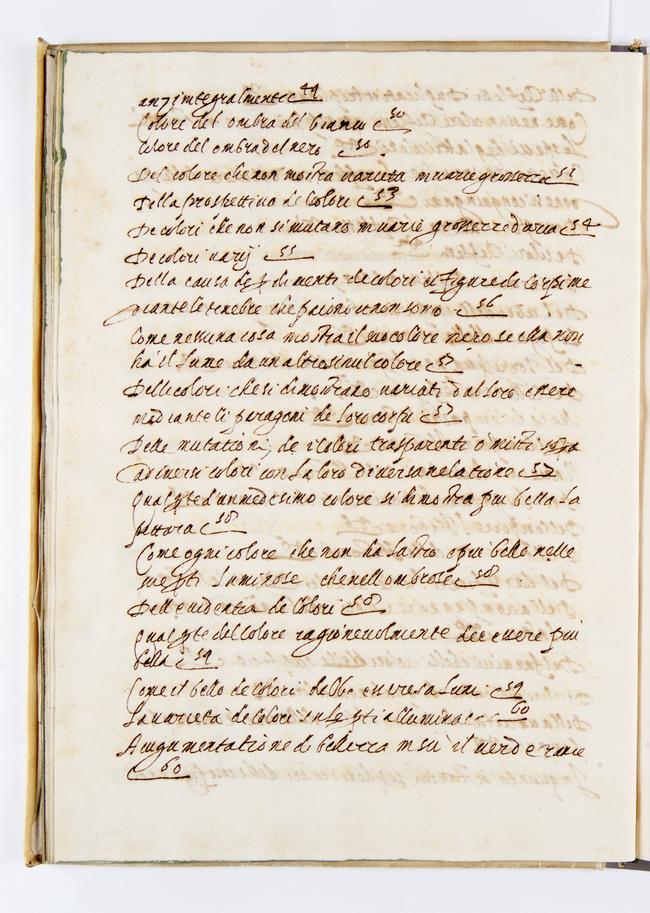 anzi integralmente 49
Colore del ombra del bianco 50
Colore del ombra del nero 50
Del colore che non mostra varieta in varie grossezze 52
Della prospettiva de Colori 53
De colori che non si mutano in varie grossezze d'aria 54
De colori varij 55
Della causa de perdimenti de colori et figure de Corpi me
diante le tenebre che paiono et non sono 56
Come nessuna cosa mostra il suo colore vero se ella non
ha il lume da un altro simil colore 57
Delli colori che si dimostrano variati dal loro essere
mediante li paragoni de loro campi 57
Delle mutationi de i colori trasparenti o misti sopra
a diversi colori con la loro diversa relatione 57
qual parte d'un medesimo colore si dimostra piu bella la
pittura 58
Come ogni colore che non ha lustro e piu bello nelle
sue parti luminose che nell ombrose 58
Dell evidentia de Colori 58
qual parte del colore ragionevolmente dee essere piu
bella 59
Come il bello de colori debbe essere sa lumi 59
La varieta de Colori alluminose 60
Aumgumentatione di bellezza in su il verde rame
60